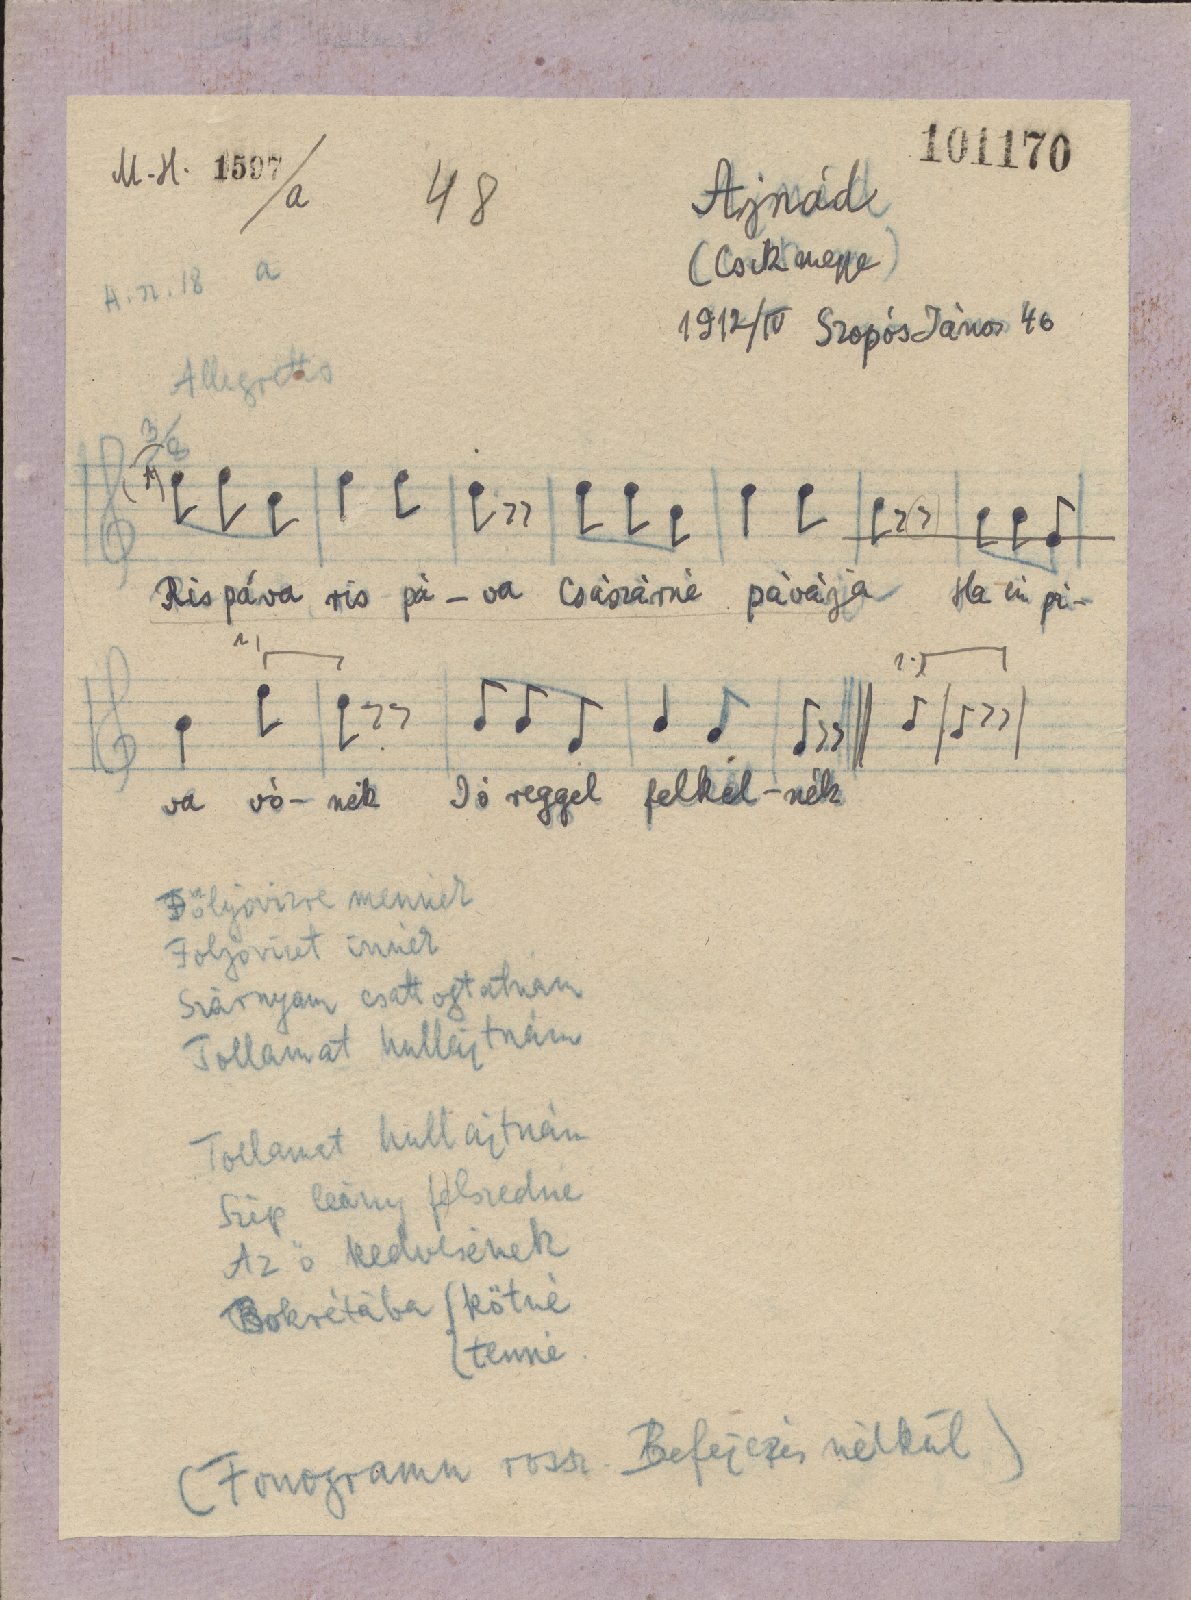 M.-H. 1597/a
48
101170
Ajnád
(Csik megye)
1912/IV Szopós János 46
H.n.18 a
Allegretto
3/8
Rispáva ris pá-va Császárné pávája Ha én pá-
va vó-nék Jó reggel felkél-nék
Fölyóvizre mennék
Folyóvizet innék
Szárnyam csattogtatnám
Tollamat hullajtnám
Tollamat hullajtnám
Szép leány felszedné
Az ő kedvesének
Bokrétába kötné
tenné.
(Fonogramm rossz. Befejezés nélkül)